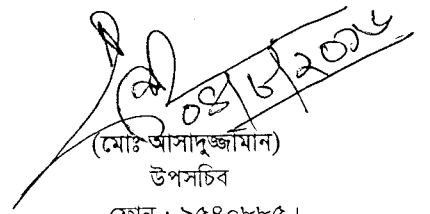 ০৪/৮/২০১৬
(মোঃ আসাদুজ্জামান)
উপসচিব
ফোন : ৯৫৪০৮৮৫।